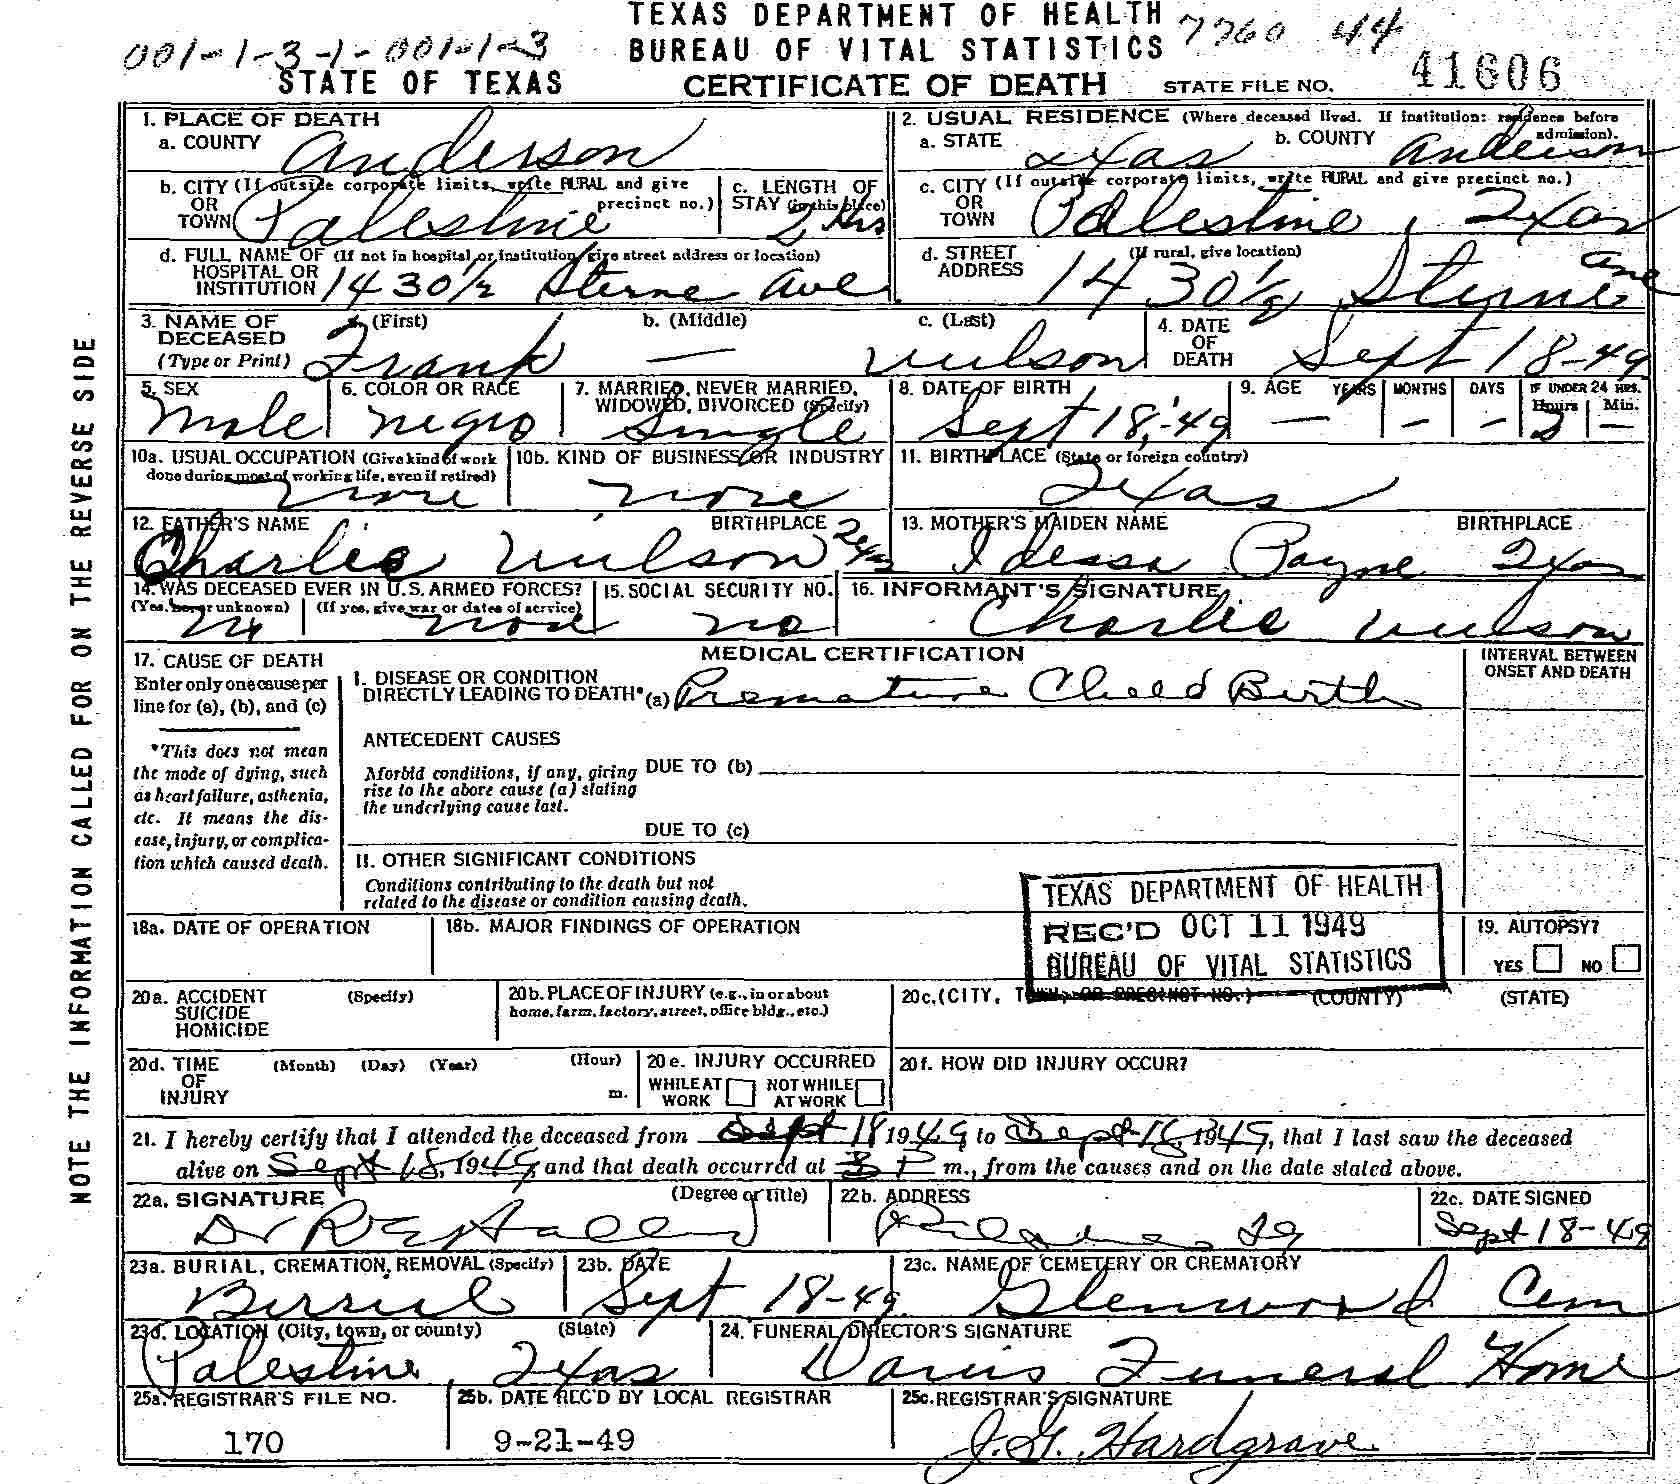 TEXAS DEPARTMENT OF HEALTH 7760 44
001-1-3-1-001-1-3 BUREAU OF VITAL STATISTICS
STATE OF TEXAS CERTIFICATE OF DEATH STATE FILE NO. 41606
NOTE THE INFORMATION CALLED FOR ON THE REVERSE SIDE
1. PLACE OF DEATH
a. COUNTY Anderson
2. USUAL RESIDENCE (Where deceased lived. If institution: residence before admission).
a. STATE Texas b. COUNTY Anderson
b. CITY (If outside corporate limits, write RURAL and give precinct no.)
OR TOWN Palestine
c. LENGTH OF STAY (in this place) 2 Hrs
c. CITY (If outside corporate limits, write RURAL and give precinct no.)
OR TOWN Palestine, Texas
d. FULL NAME OF (If not in hospital or institution, give street address or location)
HOSPITAL OR INSTITUTION 1430 1/2 Sterne Ave
d. STREET ADDRESS (If rural, give location)
1430 1/2 Sterne Ave
3. NAME OF DECEASED (Type or Print)
a. (First) Frank b. (Middle) — c. (Last) Wilson
4. DATE OF DEATH Sept 18-49
5. SEX Male
6. COLOR OR RACE Negro
7. MARRIED, NEVER MARRIED, WIDOWED, DIVORCED (Specify) Single
8. DATE OF BIRTH Sept 18, -49
9. AGE YEARS — MONTHS - DAYS - IF UNDER 24 HRS. Hours Min. —
10a. USUAL OCCUPATION (Give kind of work done during most of working life, even if retired) none
10b. KIND OF BUSINESS OR INDUSTRY none
11. BIRTHPLACE (State or foreign country) Texas
12. FATHER'S NAME Charlie Wilson BIRTHPLACE Texas
13. MOTHER'S MAIDEN NAME Idessa Payne BIRTHPLACE Texas
14. WAS DECEASED EVER IN U.S. ARMED FORCES?
(Yes, no, or unknown) (If yes, give war or dates of service)
15. SOCIAL SECURITY NO. no
16. INFORMANT'S SIGNATURE Charlie Wilson
MEDICAL CERTIFICATION
INTERVAL BETWEEN ONSET AND DEATH
17. CAUSE OF DEATH
Enter only one cause per line for (a), (b), and (c)
I. DISEASE OR CONDITION DIRECTLY LEADING TO DEATH* (a) Premature Child Birth
*This does not mean the mode of dying, such as heart failure, asthenia, etc. It means the disease, injury, or complication which caused death.
ANTECEDENT CAUSES
Morbid conditions, if any, giving rise to the above cause (a) stating the underlying cause last.
DUE TO (b)
DUE TO (c)
II. OTHER SIGNIFICANT CONDITIONS
Conditions contributing to the death but not related to the disease or condition causing death.
TEXAS DEPARTMENT OF HEALTH
REC'D OCT 11 1949
BUREAU OF VITAL STATISTICS
18a. DATE OF OPERATION
18b. MAJOR FINDINGS OF OPERATION
19. AUTOPSY?
YES NO
20a. ACCIDENT SUICIDE HOMICIDE (Specify)
20b. PLACE OF INJURY (e.g., in or about home, farm, factory, street, office bldg., etc.)
20c. (CITY, TOWN, OR PRECINCT NO.) (COUNTY) (STATE)
20d. TIME OF INJURY (Month) (Day) (Year) (Hour) m.
20e. INJURY OCCURRED
WHILE AT WORK NOT WHILE AT WORK
20f. HOW DID INJURY OCCUR?
21. I hereby certify that I attended the deceased from Sept 18 1949 to Sept 18, 1949, that I last saw the deceased
alive on Sept 18, 1949, and that death occurred at 3 P m., from the causes and on the date stated above.
22a. SIGNATURE (Degree or title) Dr
22b. ADDRESS
22c. DATE SIGNED Sept 18-49
23a. BURIAL, CREMATION, REMOVAL (Specify)
23b. DATE Sept 18-49
23c. NAME OF CEMETERY OR CREMATORY Glenwood Cem
23d. LOCATION (City, town, or county) (State) Palestine, Texas
24. FUNERAL DIRECTOR'S SIGNATURE Davis Funeral Home
25a. REGISTRAR'S FILE NO. 170
25b. DATE REC'D BY LOCAL REGISTRAR 9-21-49
25c. REGISTRAR'S SIGNATURE J.G. Hardgrave